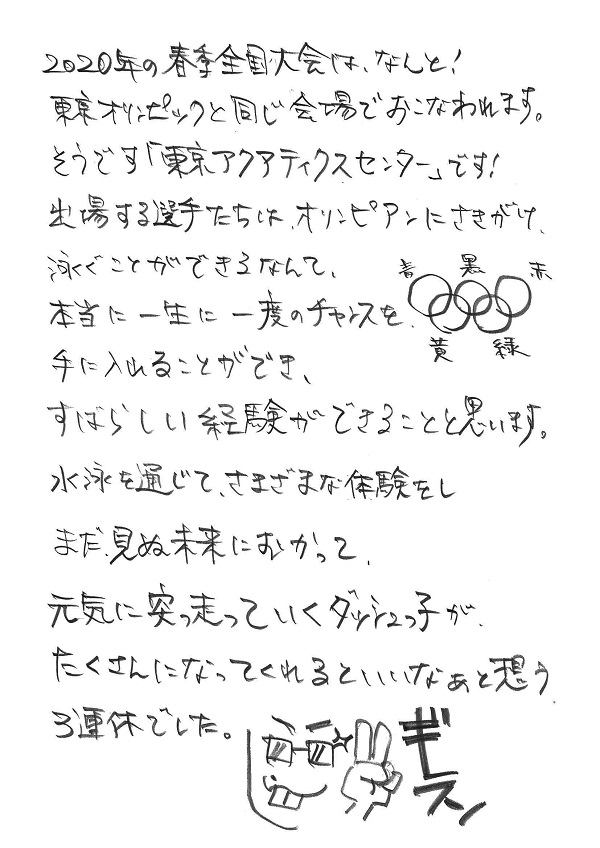 2020年の春季全国大会は、なんと!
東京オリンピックと同じ会場でおこなわれます。
そうです「東京アクアティクスセンター」です!
出場する選手たちは、オリンピアンにさきがけ、
泳ぐことができるなんて、
青 黒 赤
本当に一生に一度のチャンスを、
黄 緑
手に入れることができ、
すばらしい経験ができることと思います。
水泳を通じて、さまざまな体験をし
まだ見ぬ未来にむかって、
元気に突っ走っていくダッシュっ子が、
たくさんになってくれるといいなぁと想う
3連休でした。
ギースン